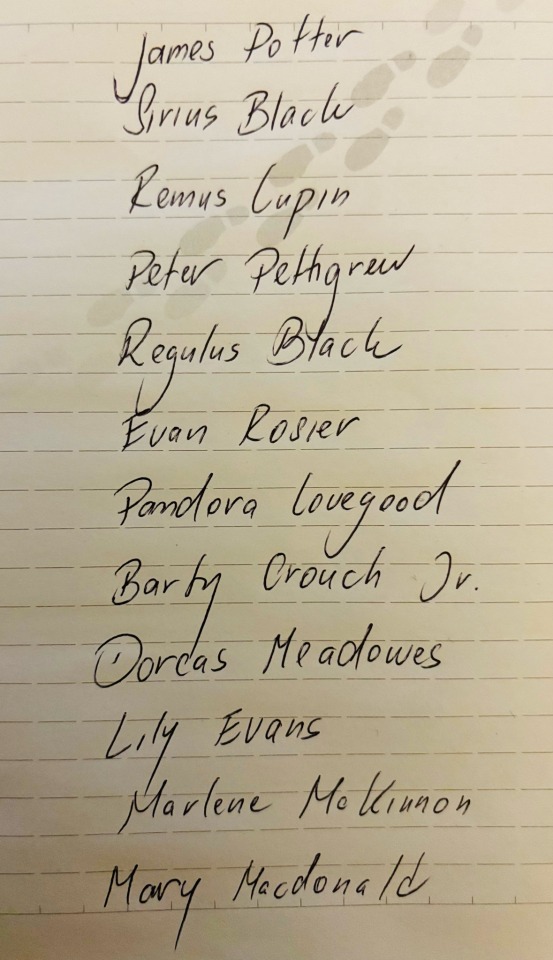 James Potter
Sirius Black
Remus Lupin
Peter Pettigrew
Regulus Black
Evan Rosier
Pandora Lovegood
Barty Crouch Jr.
Dorcas Meadowes
Lily Evans
Marlene McKinnon
Mary Macdonald